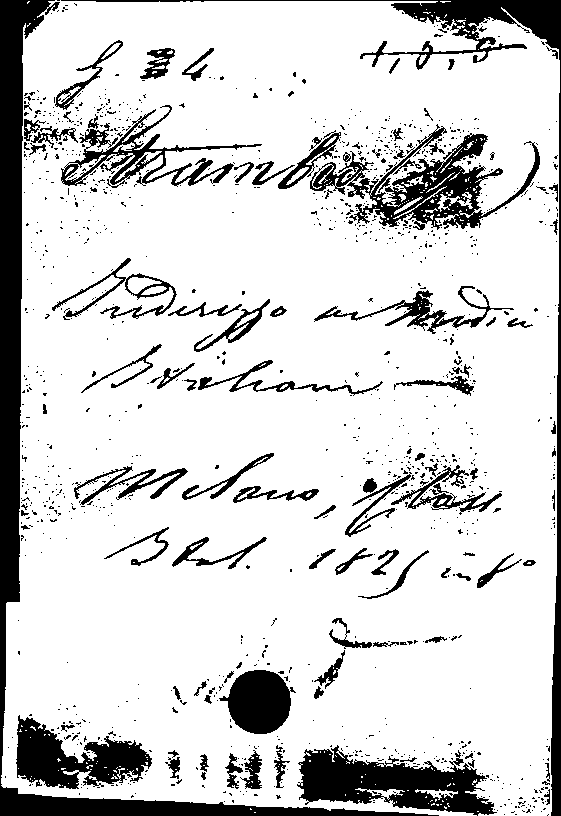 G. 4.
1, 0, 8
Strambio (Gio)
Indirizzo ai Medici
Italiani —
Milano, Class.
Ital. 1825 in 8°